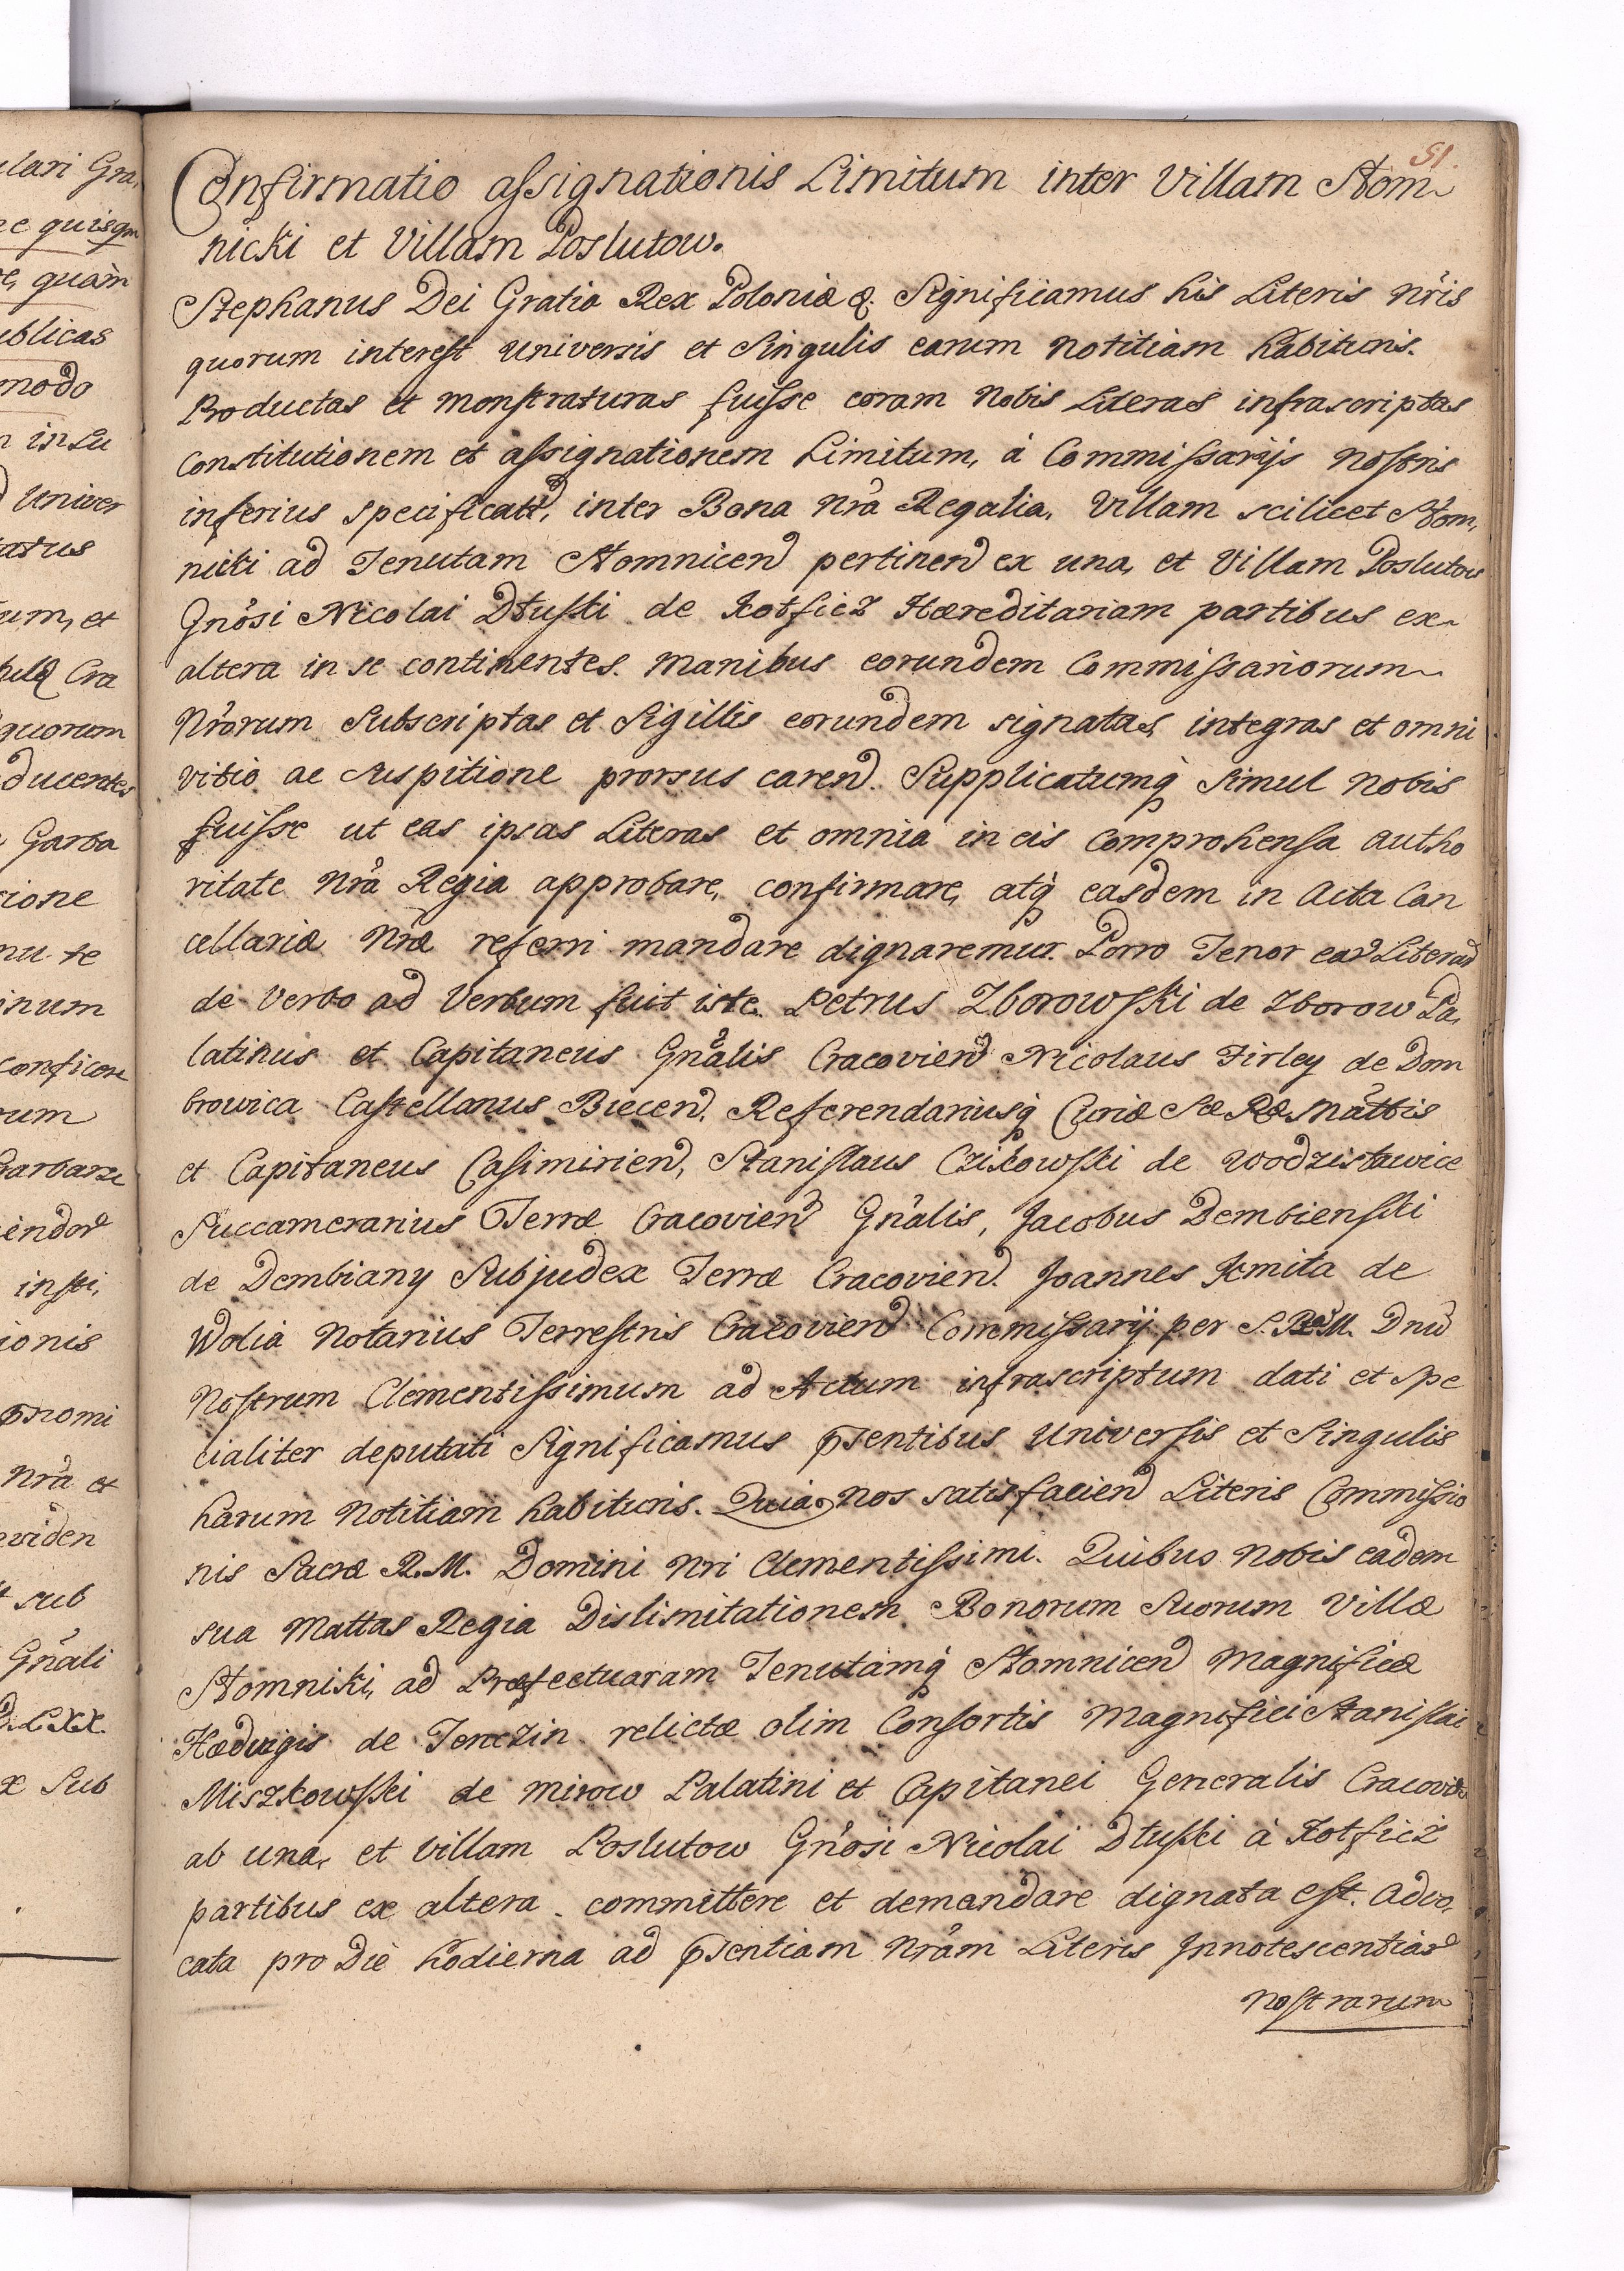 51.
Confirmatio assignationis Limitum inter Villam Słom
nicki et Villam Poslutow.
Stephanus Dei Gratia Rex Poloniæ &. Significamus his Literis nr̃is
quorum interest universis et Singulis earum notitiam habituris.
Productas et monstraturas fuisse coram Nobis Literas infrascriptas
Constitutionem et assignationem Limitum, à Commissarijs nostris
inferius specificatis, inter Bona nr̃a Regalia, Villam scilicet Słom,
nicki ad Tenutam Słomnicen pertinen ex una, et Villam Poslutow
Gnosi Nicolai Dłuski de Kotficz Hæreditariam partibus ex
altera in se continentes. manibus eorundem Commissariorum
Nr̃orum Subscriptas et Sigillis eorundem signatas, integras et omni
vitio ac suspitione prorsus caren. Supplicatumq simul nobis
fuisse ut eas ipsas Literas et omnia in eis comprohensa autho
ritate nr̃a Regia approbare, confirmare, atq easdem in Acta Can
cellariæ Nr̃æ referri mandare dignaremur. Porro Tenor ear Literar
de Verbo ad Verbum fuit iste. Petrus Zborowski de Zborow Pa,
latinus et Capitaneus Gnalis Cracovien Nicolaus Firley de Dom
browica Castellanus Biecen, Referendariusq Curiæ Sæ Ræ Mattis
et Capitaneus Casimirien, Stanislaus Czikowski de Wodzisławice
Succamerarius Terræ Cracovien Gnalis, Jacobus Dembienski
de Dembiany Subjudex Terræ Cracovien. Joannes Kmita de
Wolia Notarius Terrestris Cracovien Commissarij per S. Ræ M. Dnu
Nostrum Clementissimum ad Actum infrascriptum dati et spe
cialiter deputati Significamus pr̃sentibus Universis et Singulis
harum Notitiam habituris. Quia nos satisfacien Literis Commissio
nis Sacræ R.M. Domini Nri Clementissimi. Quibus Nobis eadem
sua Mattas Regia Dislimitationem Bonorum Suorum Villæ
Słomniki, ad Præfectuaram Tenutamq Słomnicen Magnificæ
Hædvigis de Tenczin relictæ olim Consortis Magnifici Stanislai
Miszkowski de Mirow Palatini et Capitanei Generalis Cracovien
ab una, et villam Poslutow Gnosi Nicolai Dłuski à Kotficz
partibus ex altera committere et demandare dignata est. Advo,
cata pro Die hodierna ad pr̃sentiam Nr̃am Literis Innotescentiar
nostrarum